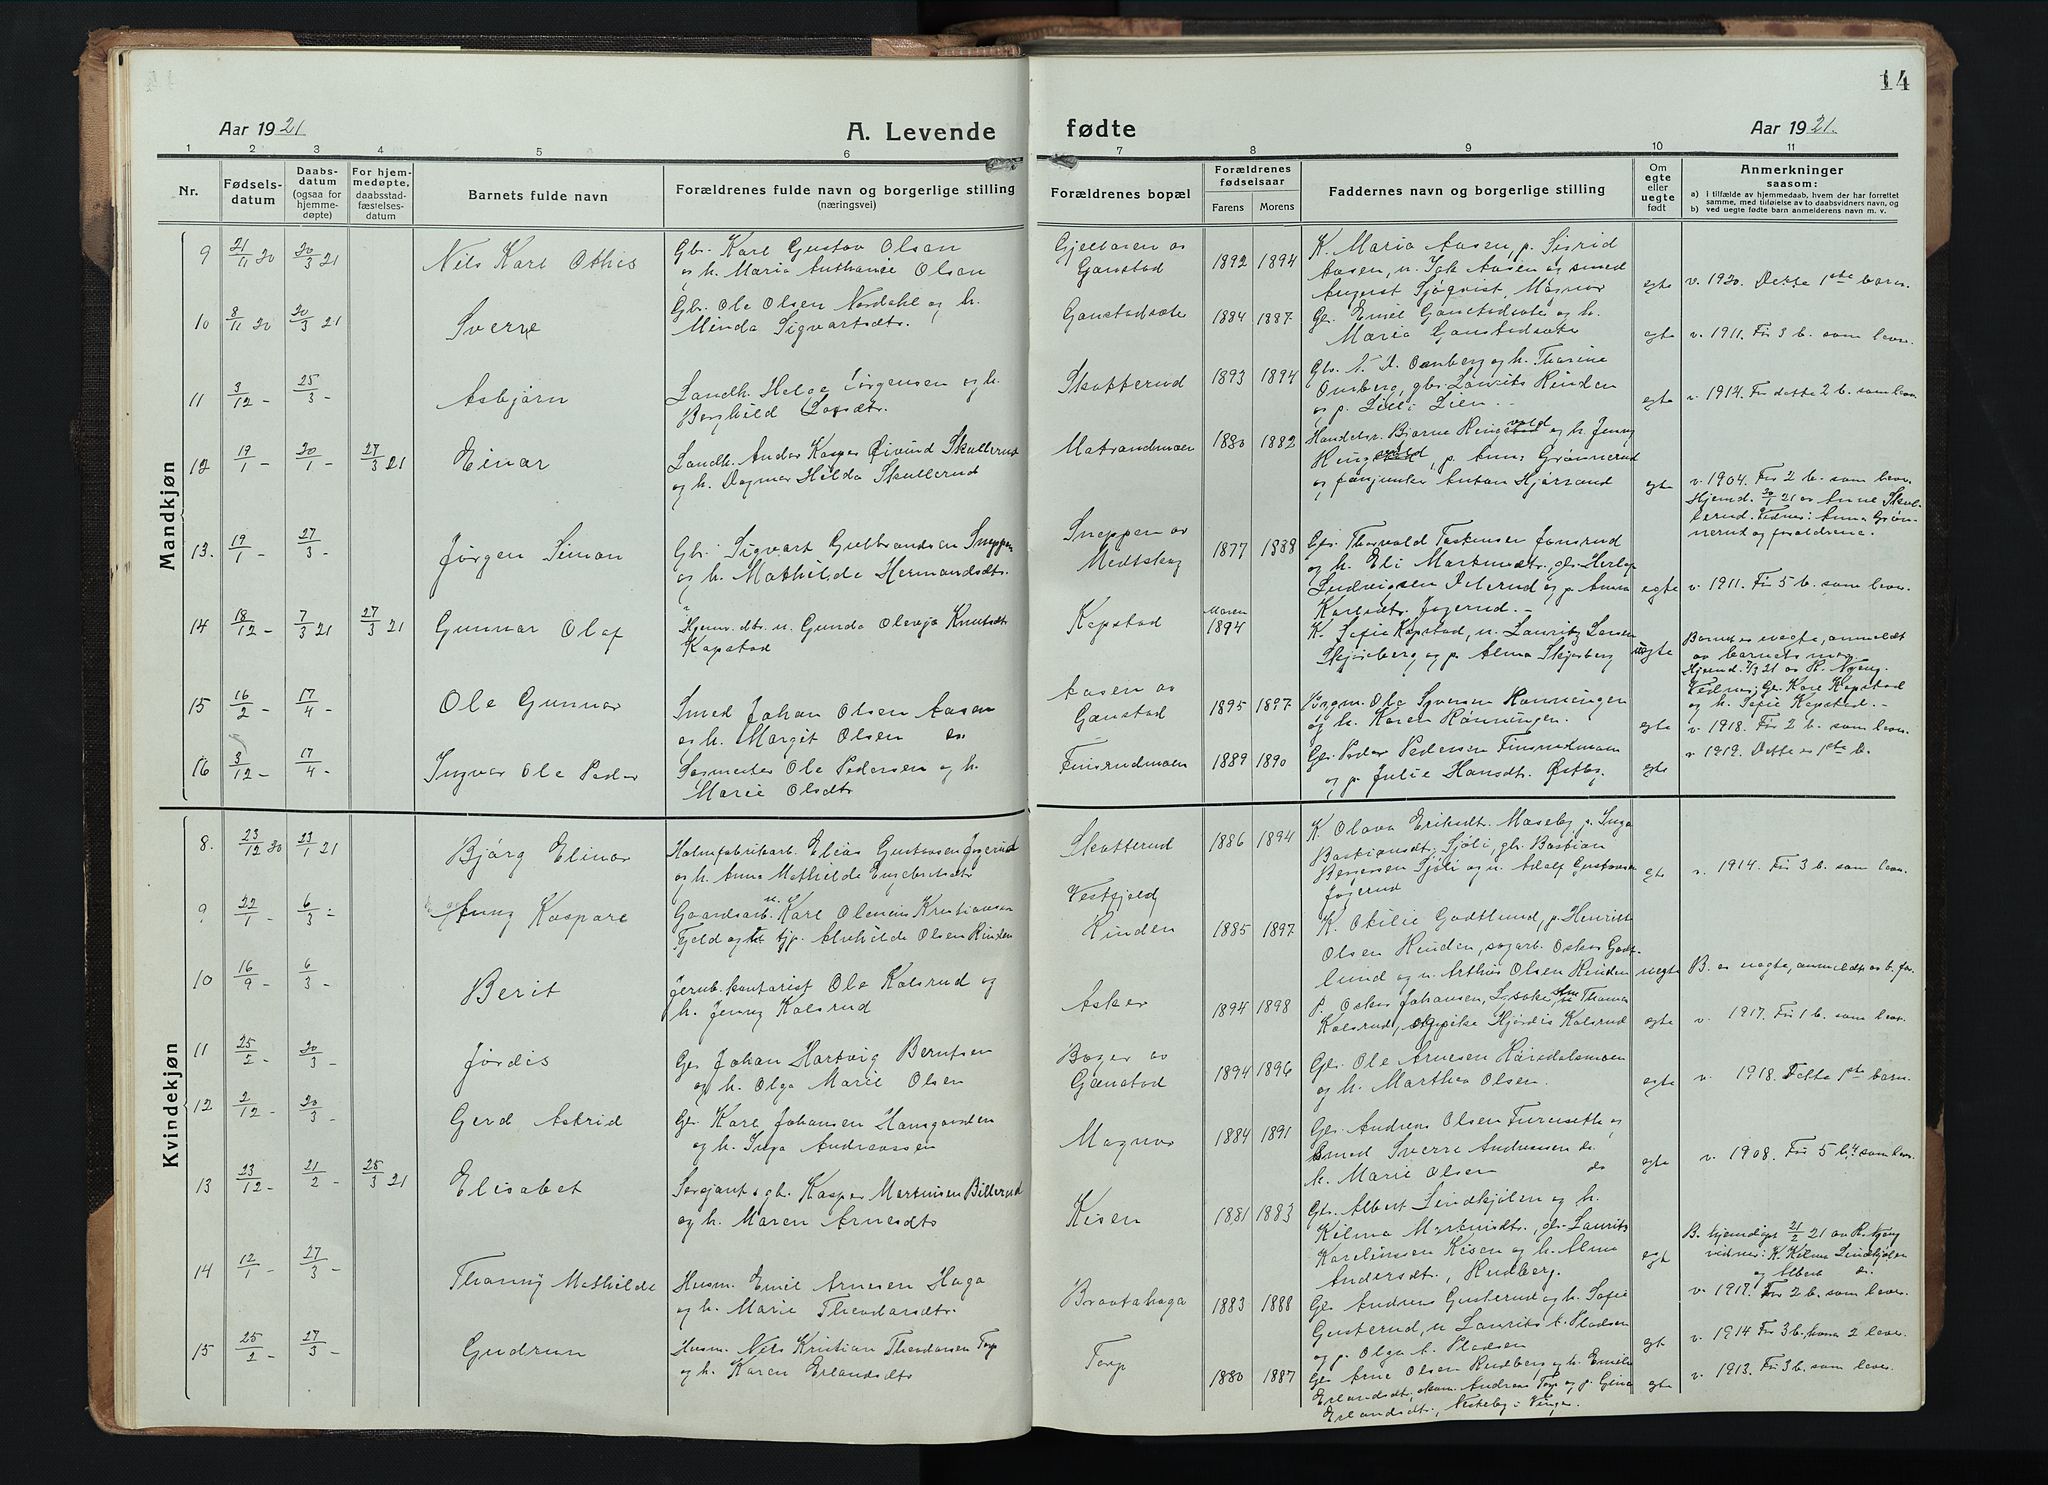 14
Aar 1921
A. Levende
fødte
Aar 1921.
1 2 3 4 5 6 7 8 9 10 11
Nr.
Fødselsdatum
Daabsdatum (ogsaa for hjemmedøpte)
For hjemmedøpte, daabsstadfæstelsesdatum
Barnets fulde navn
Forældrenes fulde navn og borgerlige stilling (næringsvei)
Forældrenes bopæl
Forældrenes fødselsaar
Farens
Morens
Faddernes navn og borgerlige stilling
Om egte eller uegte født
Anmerkninger saasom:
a) i tilfælde av hjemmedaab, hvem der har forrettet samme, med tilføielse av to daabsvidners navn, og
b) ved uegte fødte barn anmelderens navn m. v.
Mandkjøn
9 21/11 20 20/3 21 Nils Karl Othis
Gbr. Karl Gustav Olsen
og h. Maria Anthanie Olsen
Ganstad
1892 1894
K. Maria Aasen, p. Sigrid
August Sjøqvist, Magnor
egte
v. 1920. Dette 1ste barn.
10 8/11 20 20/3 21 Sverre
Gbr. Ole Olsen Nordahl og h.
Minda Sigvartsdtr.
Ganstadsæte
1884 1887
Gbr. Emil Ganstadsæte og h.
Maria Ganstadsæte
egte
v. 1911. Før 3 b. som lever.
11 3/12 - 25/3 - Asbjørn
Landh. Helge Jørgensen og h.
Borghild
Skotterud
1893 1894
og h. Thorine
gbr. Laurits Rinden
og p. Lilli Lien.
egte
v. 1914. Før dette 2 b. som lever
12 19/1 - 20/1 - 27/3 21 Einar
Landh. Ander Kasper Øivind Skullerud
og h. Dagmar Hilda Skullerud
Matrandmoen
1880 1882
Handelsr. Bjarne Ringvold og h. Jenny
Ringvold, p. Anna Grønnerud
og fanjunker Anton Hjørrand
egte
v. 1904. Før 2 b. som lever.
Hjemd. 20/1 21 av Anne Skullerud. Vidner: Anna Grønnerud og forældrene.
13. 19/1 - 27/3 - Jørgen Simon
Gbr. Sigvart Gulbrandsen Sneppen
og h. Mathilde Hermandsdtr.
Sneppen av
Medtskog
1877 1888
Gbr. Thorvald Jonsrud
og h. Eli Martinsdtr., gbr. Herlof
Ludvigsen og p. Anna
Karlsdtr. Jogerud.
egte
v. 1911. Før 5 b. som lever.
14 18/12 - 7/3 21 27/3 21 Gunnar Olaf
Hjemv. dtr. u. Gunda Olevja Knutsdtr.
Kapstad
Kapstad
Moren
1894
K. Sofie Kapstad, u. Lauritz Larsen
Skjøsberg og p. Alma Skjøsberg
uegte
Barnet er uegte, anmeldt
av barnets mor
Hjemd. 7/3 21 av R. Nyeng.
Vidner: Gbr. Karl Kapstad
og h. Sofie Kapstad.
15 16/2 - 17/4 - Ole Gunnar
Smed Johan Olsen Aasen
og h. Margit Olsen
Aasen av
Ganstad
1895 1897
Ole Syversen Rønningen
og h. Karen Rønningen.
egte
v. 1918. Før 2 b. som lever.
16 3/12 - 17/4 - Ingvar Ole Peder
Sagmester Ole Pedersen og h.
Marie Olsdtr
Finsrudmoen
1889 1890
Gbr. Peder Pedersen Finsrudmoen
og p. Julie Hansdtr. Østby.
egte
v. 1919. Dette er 1ste b.
Kvindekjøn
8. 23/12 20 23/1 21 Bjørg Elinor
Halmfabrikarb. Elias Gustavsen Jogerud
og h. Anna Mathilde Engebretsdtr
Skotterud
1886 1894
K. Olava Eriksdtr. Moseby p. Inga
Bastiansdtr. Sjøli, gbr. Bastian
Sjøli og u. Adolf Gustavsen
Jogerud
egte
v. 1914. Før 3 b. som lever.
9 22/1 - 6/3 - Anny Kaspara
Gaardsarb. u. Karl Olenius Kristiansen
Fjeld og tjp. Alvhilde Olsen Rinden
Vestfjeld
Rinden
1885 1897
K. Otilie Godtlund, p. Henriette
Olsen Rinden, sagarb. Oskar Godtlund og u. Arthur Olsen Rinden
uegte
B. er uegte, anmeldt av b. far.
10 16/9 - 6/3 - Berit
Jernb. kontorist Ole Kalsrud og
h. Jenny Kalsrud
Asker
1894 1898
P. Oskar Johansen, Thomas
Kalsrud, Hjørdis Kalsrud
egte
v. 1917. Før 1 b. som lever.
11 25/2 - 20/3 - Jørdis
Gbr Johan Hartvig Berntsen
og h. Olga Marie Olsen
Boger av
Ganstad
1894 1896
Gbr. Ole Arnesen
og h. Marthea Olsen.
egte
v. 1918. Dette 1ste barn.
12 2/12 - 20/3 - Gerd Astrid
Gbr Karl Johansen Hansgaarden
og h. Inga Andreassen
Magnor
1884 1891
Gbr. Andreas Olsen Furuseth og
smed Sverre Andreassen do.
h. Marie Olsen do
egte
v. 1908. Før 5 b. som lever.
13 23/12 - 21/2 - 25/3 21 Elisabet
Sersjant og gbr. Kasper Martinsen Billerud
og h. Maren Arnesdtr
Kisen
1881 1883
Gbr. Albert Lindkjølen og h.
Kilma Martinsdtr., gbr. Laurits
Karelinssen Kisen og h. Alma
Andersdtr., Rudberg.
egt
B. hjemdøpt 21/2 21 av R. Nyeng
vidner: K. Kilma Lindkjølen
og Albert do.
14 12/1 - 27/3 - Thanny Mathilde
Husm. Emil Arnesen Haga
og h. Marie Theodorsdtr.
Braatahaga
1883 1888
Gbr Andreas Gusterud og h. Sofie
Gusterud, u Laurits t. Pladsen
og p. Olga t. Pladsen
egt
v. 1917. Før 2 b. som lever.
v. 1914 Før 3 b. hvorav 2 lever.
15 25/2 - 27/3 - Gudrun
Husm. Nils Kristian Theodorsen Torp
og h. Karen Erlandsdtr
Torp
1880 1887
Gbr Arne Olsen Rudberg og h. Emilie
Erlandsdt, Andreas Torp og p. Gina
Erlandsdtr., Neskeby i Vinger.
egte
v. 1913. Før 3 b. som lever.